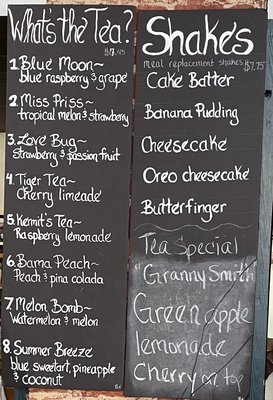 What's the Tea?
$7.45
1. Blue Moon~
blue raspberry & grape
2. Miss Priss~
tropical melon & strawberry
3. Love Bug~
Strawberry & passion fruit
4. Tiger Tea~
Cherry limeade
5. Kermit's Tea~
Raspberry lemonade
6. Bama Peach~
Peach & pina colada
7. Melon Bomb~
Watermelon & melon
8. Summer Breeze
blue sweetart, pineapple
& coconut
Shake's
meal replacement shakes $7.75
Cake Batter
Banana Pudding
Cheesecake
Oreo cheesecake
Butterfinger
Tea Special
"Granny Smith"
Green apple
lemonade
Cherry on top